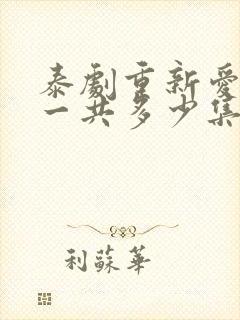 泰劇重新愛
一共多少集
利蘇華